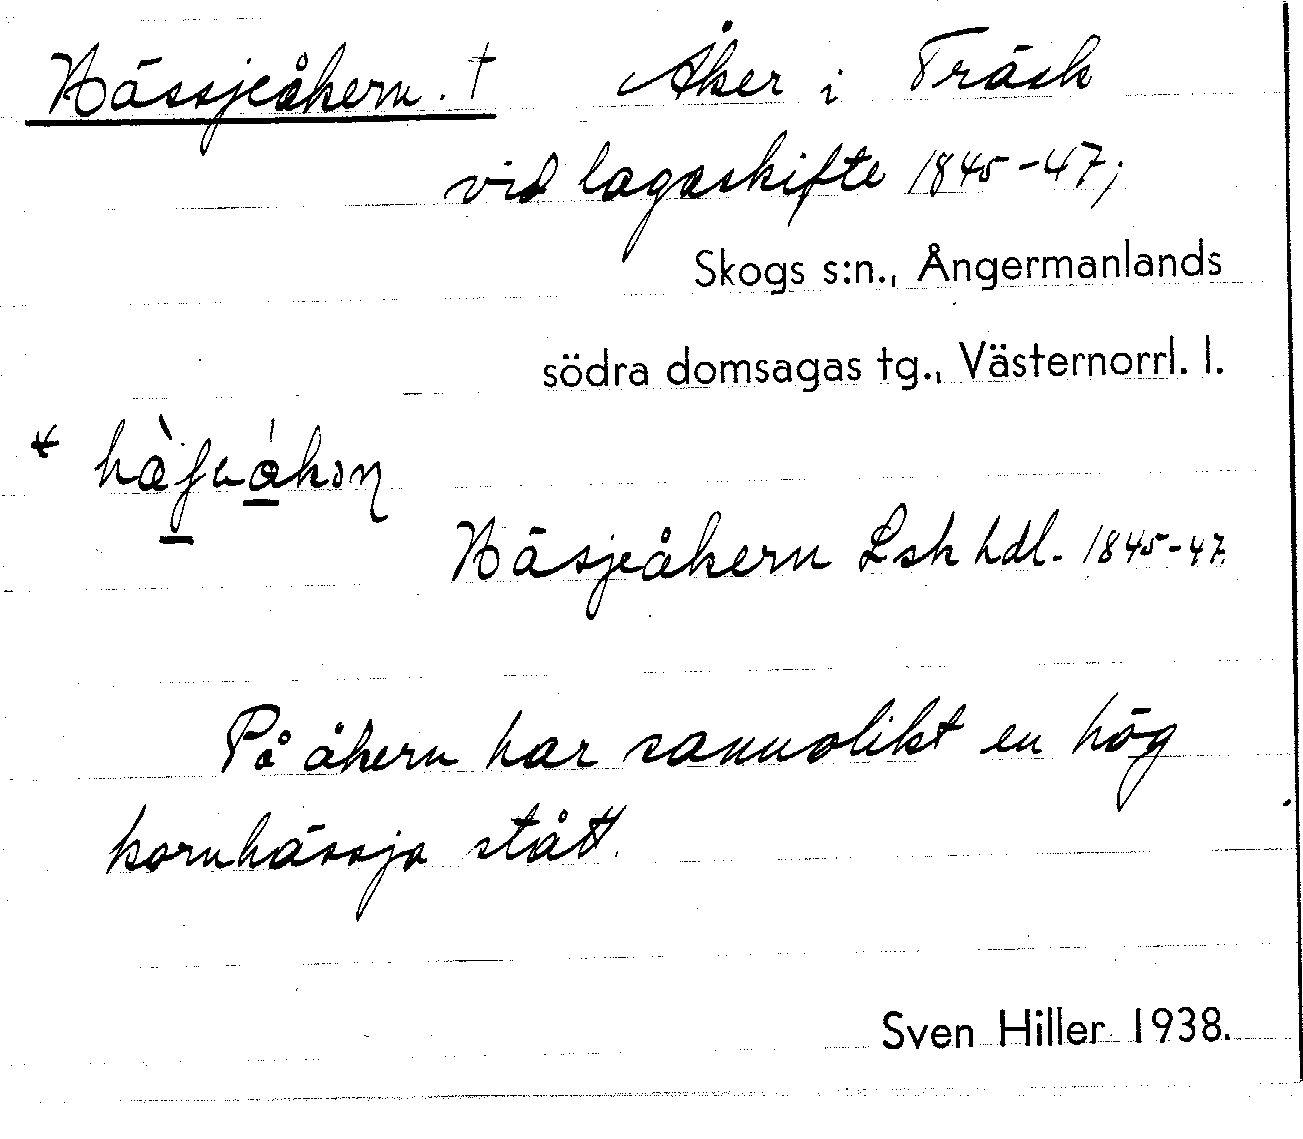 Hässjeåkern. † Åker i Träsk
vid lagaskifte 1845-47;
Skogs s:n., Ångermanlands
södra domsagas tg., Västernorrl. l.
Häsjeåkern Lsk hdl. 1845-47.
På åkern har sannolikt en hög
kornhässja stått.
Sven Hiller 1938.